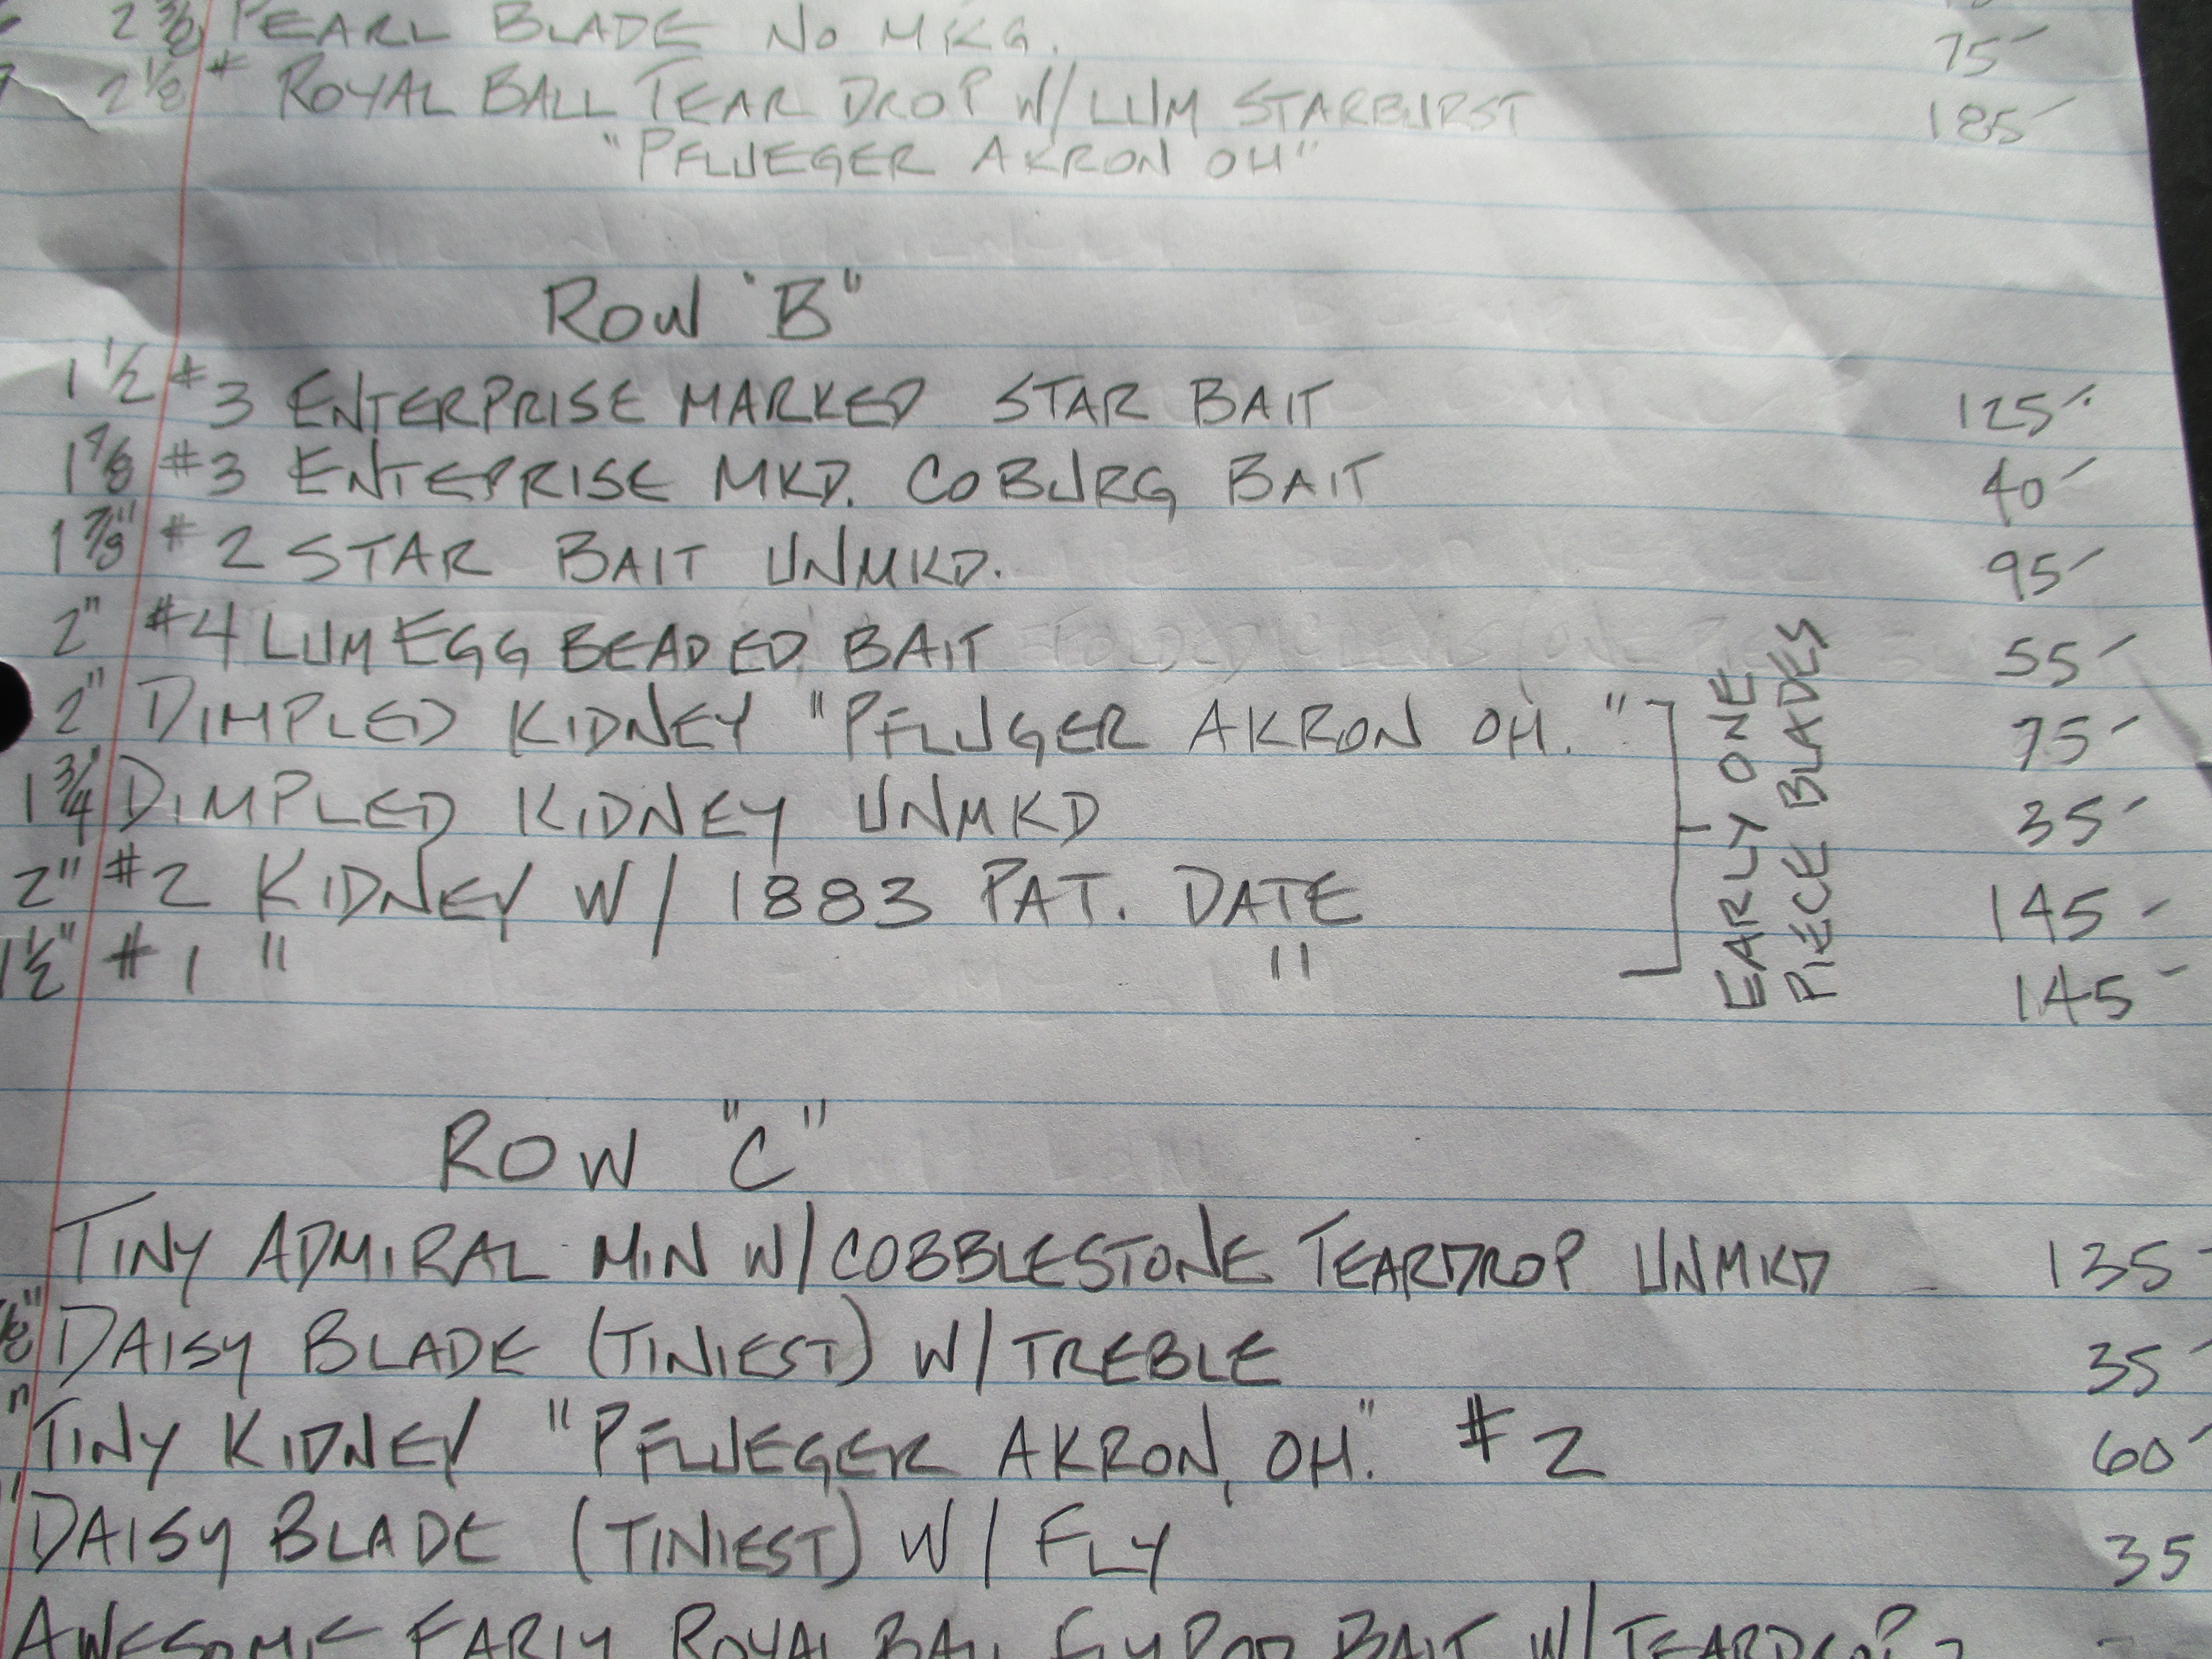 2 3/8 PEARL BLADE NO MKG. 75-
2 1/8 # ROYAL BALL TEAR DROP W/ LUM STARBURST 185-
"PFLUEGER AKRON OH"
ROW "B"
1 1/2 #3 ENTERPRISE MARKED STAR BAIT 125-
1 7/8 #3 ENTEPRISE MKD. COBURG BAIT 40-
1 7/8" #2 STAR BAIT UNMKD. 95-
2" #4 LUM EGG BEADED BAIT 55-
2" DIMPLED KIDNEY "PFLUGER AKRON OH." 75-
1 3/4" DIMPLED KIDNEY UNMKD 35-
2" #2 KIDNEY W/ 1883 PAT. DATE 145-
1 1/2" #1 " " 145-
EARLY ONE
PIECE BLADES
ROW "C"
TINY ADMIRAL MIN W/COBBLESTONE TEARDROP UNMKD 135-
DAISY BLADE (TINIEST) W/ TREBLE 35-
" TINY KIDNEY "PFLUEGER AKRON, OH." #2 60-
" DAISY BLADE (TINIEST) W/ FLY 35
AWESOME EARLY ROYAL BALL BAIT W/ TEARDROP